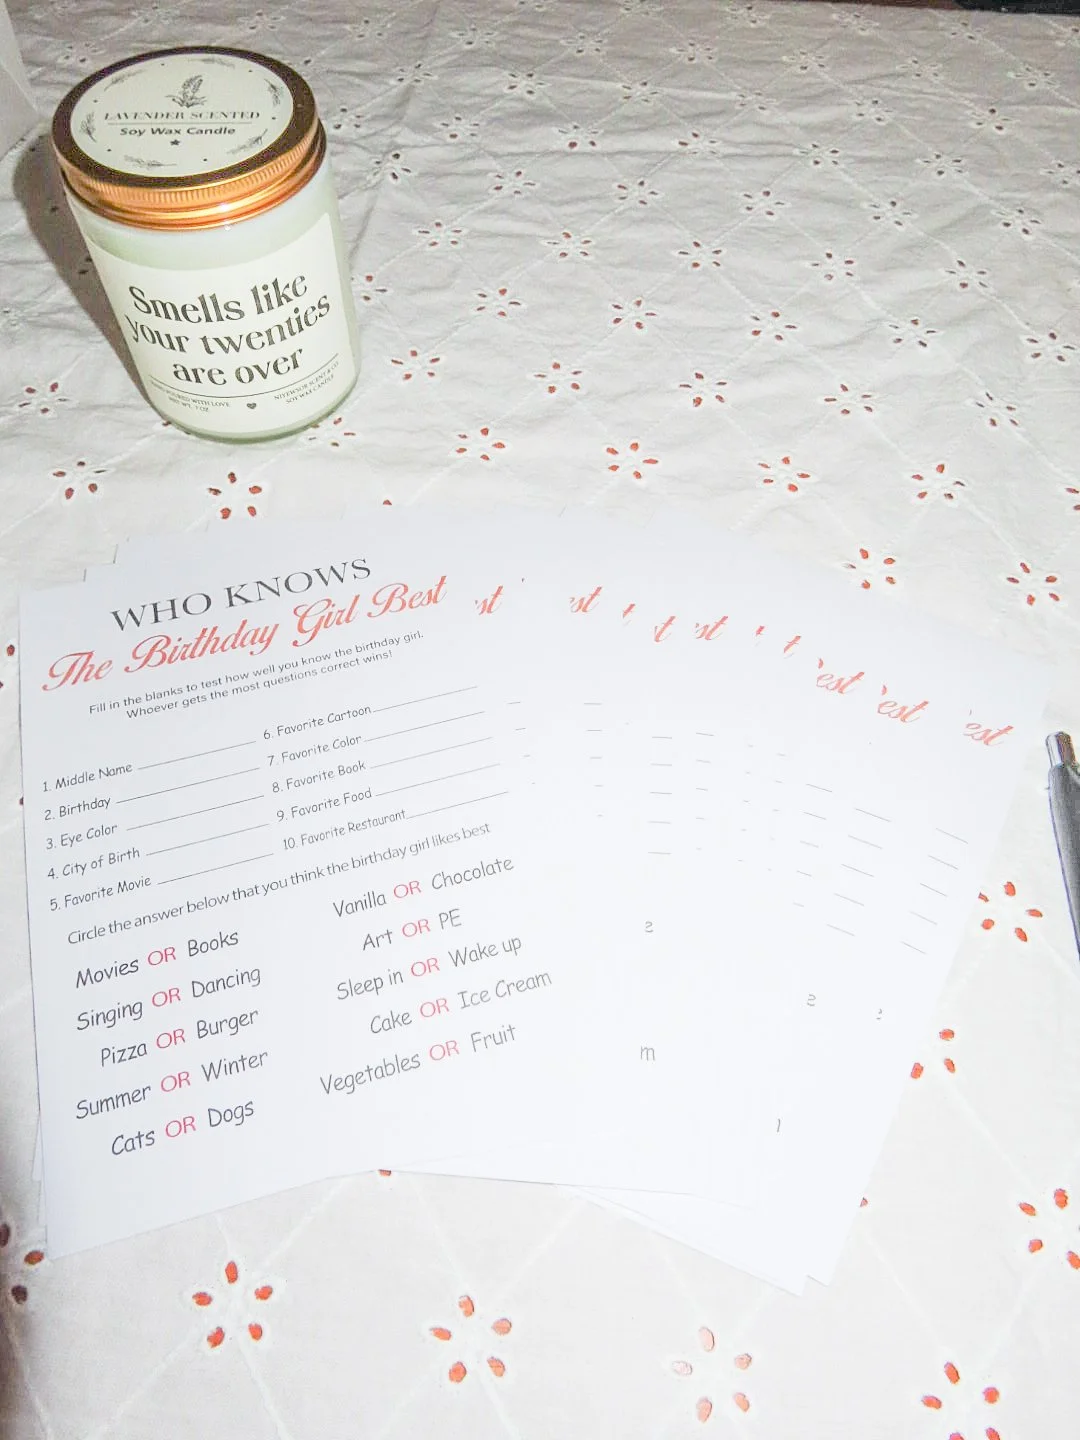 LAVENDER SCENTED
Soy Wax Candle
Smells like
your twenties
are over
POURED WITH LOVE
NET WT. 7 OZ
SOY WAX CANDLE
WHO KNOWS
The Birthday Girl Best
Fill in the blanks to test how well you know the birthday girl.
Whoever gets the most questions correct wins!
1. Middle Name
2. Birthday
3. Eye Color
4. City of Birth
5. Favorite Movie
6. Favorite Cartoon
7. Favorite Color
8. Favorite Book
9. Favorite Food
10. Favorite Restaurant
Circle the answer below that you think the birthday girl likes best
Movies OR Books
Singing OR Dancing
Pizza OR Burger
Summer OR Winter
Cats OR Dogs
Vanilla OR Chocolate
Art OR PE
Sleep in OR Wake up
Cake OR Ice Cream
Vegetables OR Fruit
st
st
t
t
st
t
est
est
est